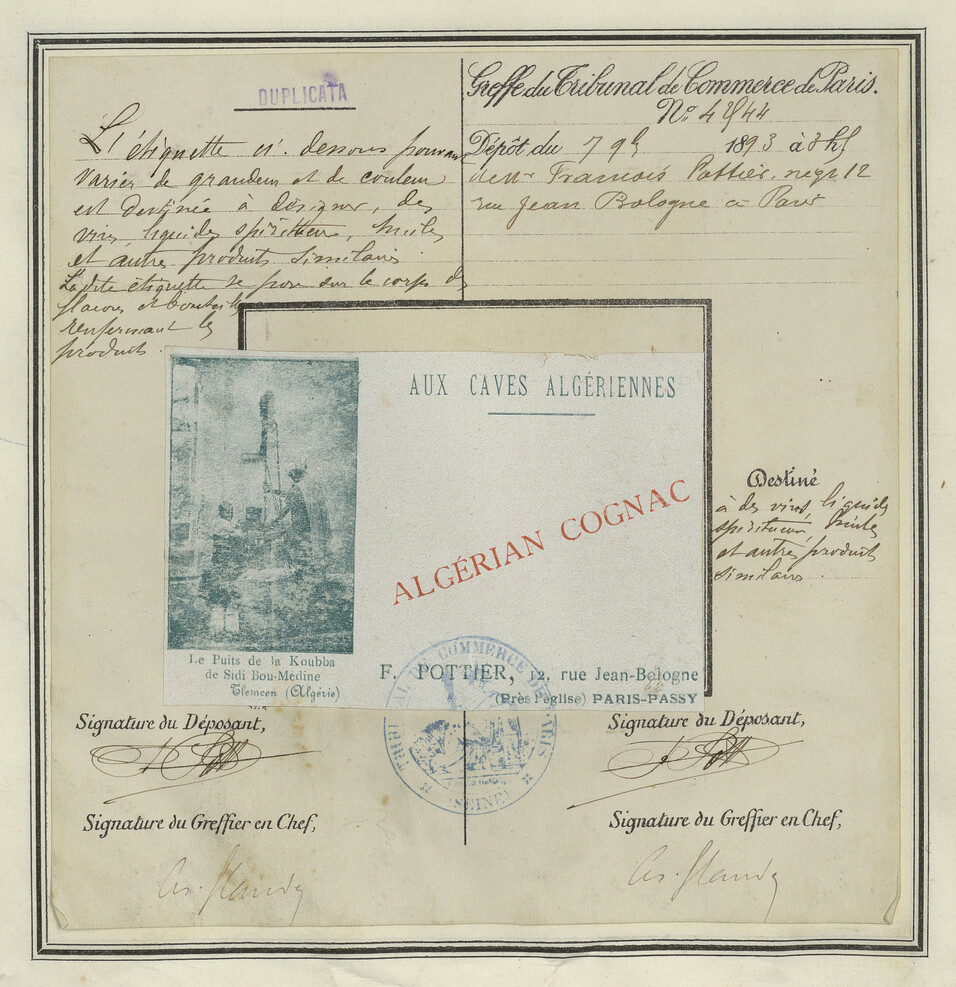 DUPLICATA
L'étiquette ci-dessous pouvant
varier de grandeur et de couleur
est destinée à désigner, des
vins, liquides spiritueux, huiles
et autres produits similaires.
La dite étiquette se pose sur le corps des
flacons et bouteilles
renfermant les
produits.
Greffe du Tribunal de Commerce de Paris.
Nº 44
Dépôt du 7 9b 1893 à 3h
de Mr François Pottier, negt 12
rue Jean Bologne à Paris
AUX CAVES ALGÉRIENNES
ALGÉRIAN COGNAC
Le Puits de la Koubba
de Sidi Bou-Médine
Tlemcen (Algérie)
F. POTTIER, 12, rue Jean-Bologne
(Près l'église) PARIS-PASSY
Destiné
à des vins, liquides
spiritueux, huiles
et autres produits
similaires.
TRIBUNAL DE COMMERCE DE PARIS
(SEINE)
Signature du Déposant,
Signature du Greffier en Chef,
Signature du Déposant,
Signature du Greffier en Chef,